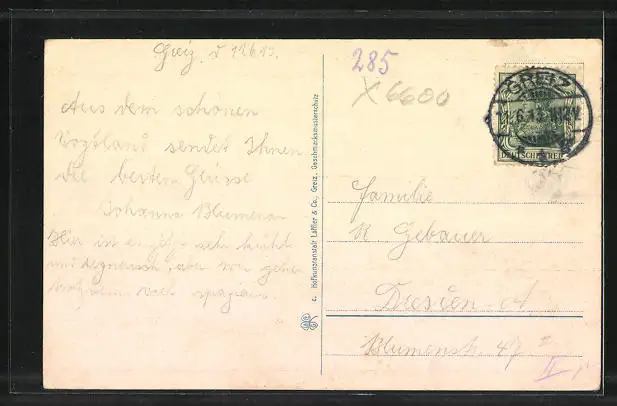 Greiz, d 11.6.13.
Aus dem schönen
Vogtland sendet Ihnen
die besten Grüsse
Johanna Blumenau
Hier ist es sehr kühl
und regnerisch, aber wir gehen
trotzdem viel spazieren.
c. Hofkunstanstalt Löffler & Co., Greiz, Geschmacksmusterschutz
285
X 6600
GREIZ
11.6.13
DEUTSCHES REICH
Familie
R Gebauer
Dresden-A
Blumenstr. 47 II
II